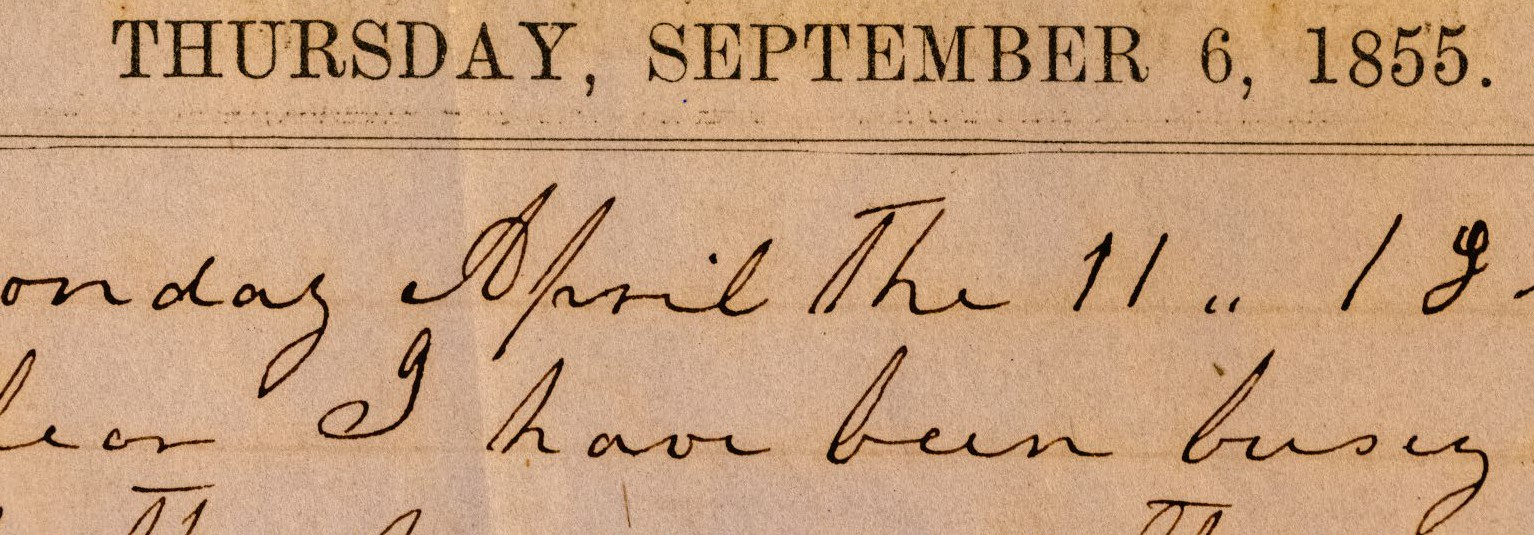 THURSDAY, SEPTEMBER 6, 1855.
onday April The 11 " 18
lear I have been busey